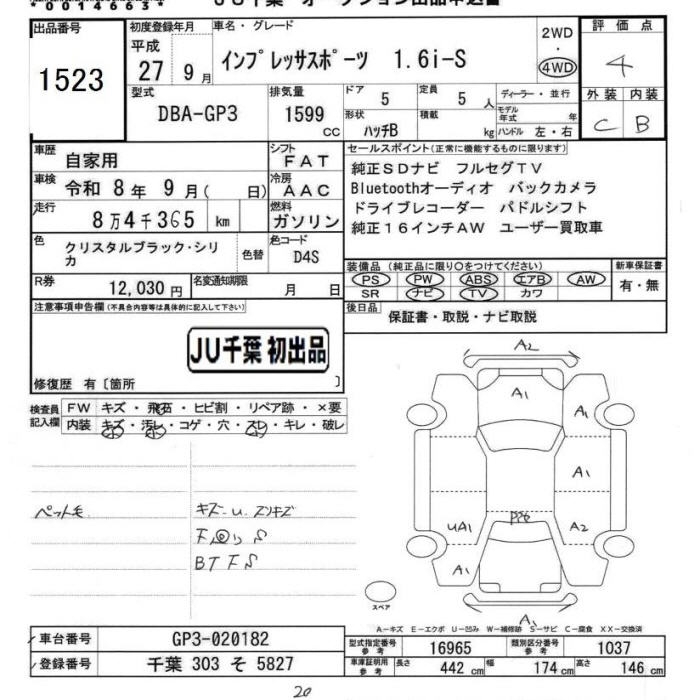 *00146634*
JU千葉 オークション出品申込書
出品番号
1523
初度登録年月
平成
27 9月
車名・グレード
インプレッサスポーツ 1.6i-S
2WD
4WD
評価点
4
外装 内装
C B
型式
DBA-GP3
排気量
1599
CC
ドア
5
形状
ハッチB
定員
5 人
積載
kg
ディーラー・並行
モデル
年式 年
ハンドル 左・右
車歴
自家用
シフト
FAT
車検
令和 8年 9月( 日)
冷房
AAC
走行
8万4千365 km
燃料
ガソリン
色
クリスタルブラック・シリ
カ
色替
色コード
D4S
R券
12,030 円
名変通知期限
月 日
セールスポイント(正常に機能するものに限ります)
純正SDナビ フルセグTV
Bluetoothオーディオ バックカメラ
ドライブレコーダー パドルシフト
純正16インチAW ユーザー買取車
装備品(純正品に限り○をつけてください)
PS PW ABS エアB AW
SR ナビ TV カワ
新車保証書
有・無
後日品
保証書・取説・ナビ取説
注意事項申告欄(不具合内容等は具体的に記入して下さい)
JU千葉 初出品
修復歴 有〔箇所 〕
検査員
記入欄
FW キズ・飛石・ヒビ割・リペア跡・×要
内装 キズ・汚レ・コゲ・穴・スレ・キレ・破レ
ペット毛
キズ・U. スリキズ
BTFS
A2
A1
A1
A1
UA1
A2
A1
A1
A1
スペア
A-キズ E-エクボ U-凹み W-補修跡 S-サビ C-腐食 XX-交換済
車台番号
GP3-020182
登録番号
千葉 303 そ 5827
型式指定番号
参考
16965
類別区分番号
参考
1037
車庫証明用
参考
長さ 442 cm 幅 174 cm 高さ 146 cm
20